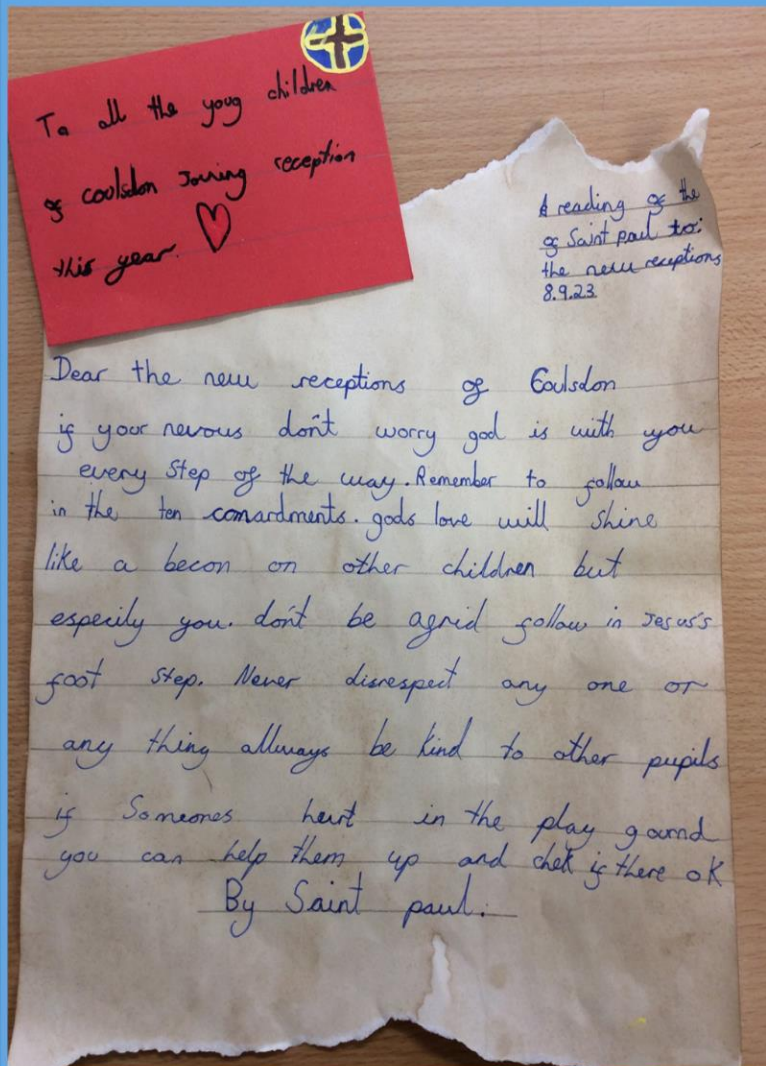 To all the youg children
of coulsdon Joining reception
this year.
A reading of the
of Saint paul to:
the new receptions
8.9.23
Dear the new receptions of Coulsdon
if your nevous don't worry god is with you
every step of the way. Remember to follow
in the ten comardments. gods love will shine
like a becon on other children but
especily you. don't be agrid follow in Jesus's
foot step. Never disrespect any one or
any thing allways be kind to other pupils
if Someones hurt in the play gournd
you can help them up and chek if there ok
By Saint paul.